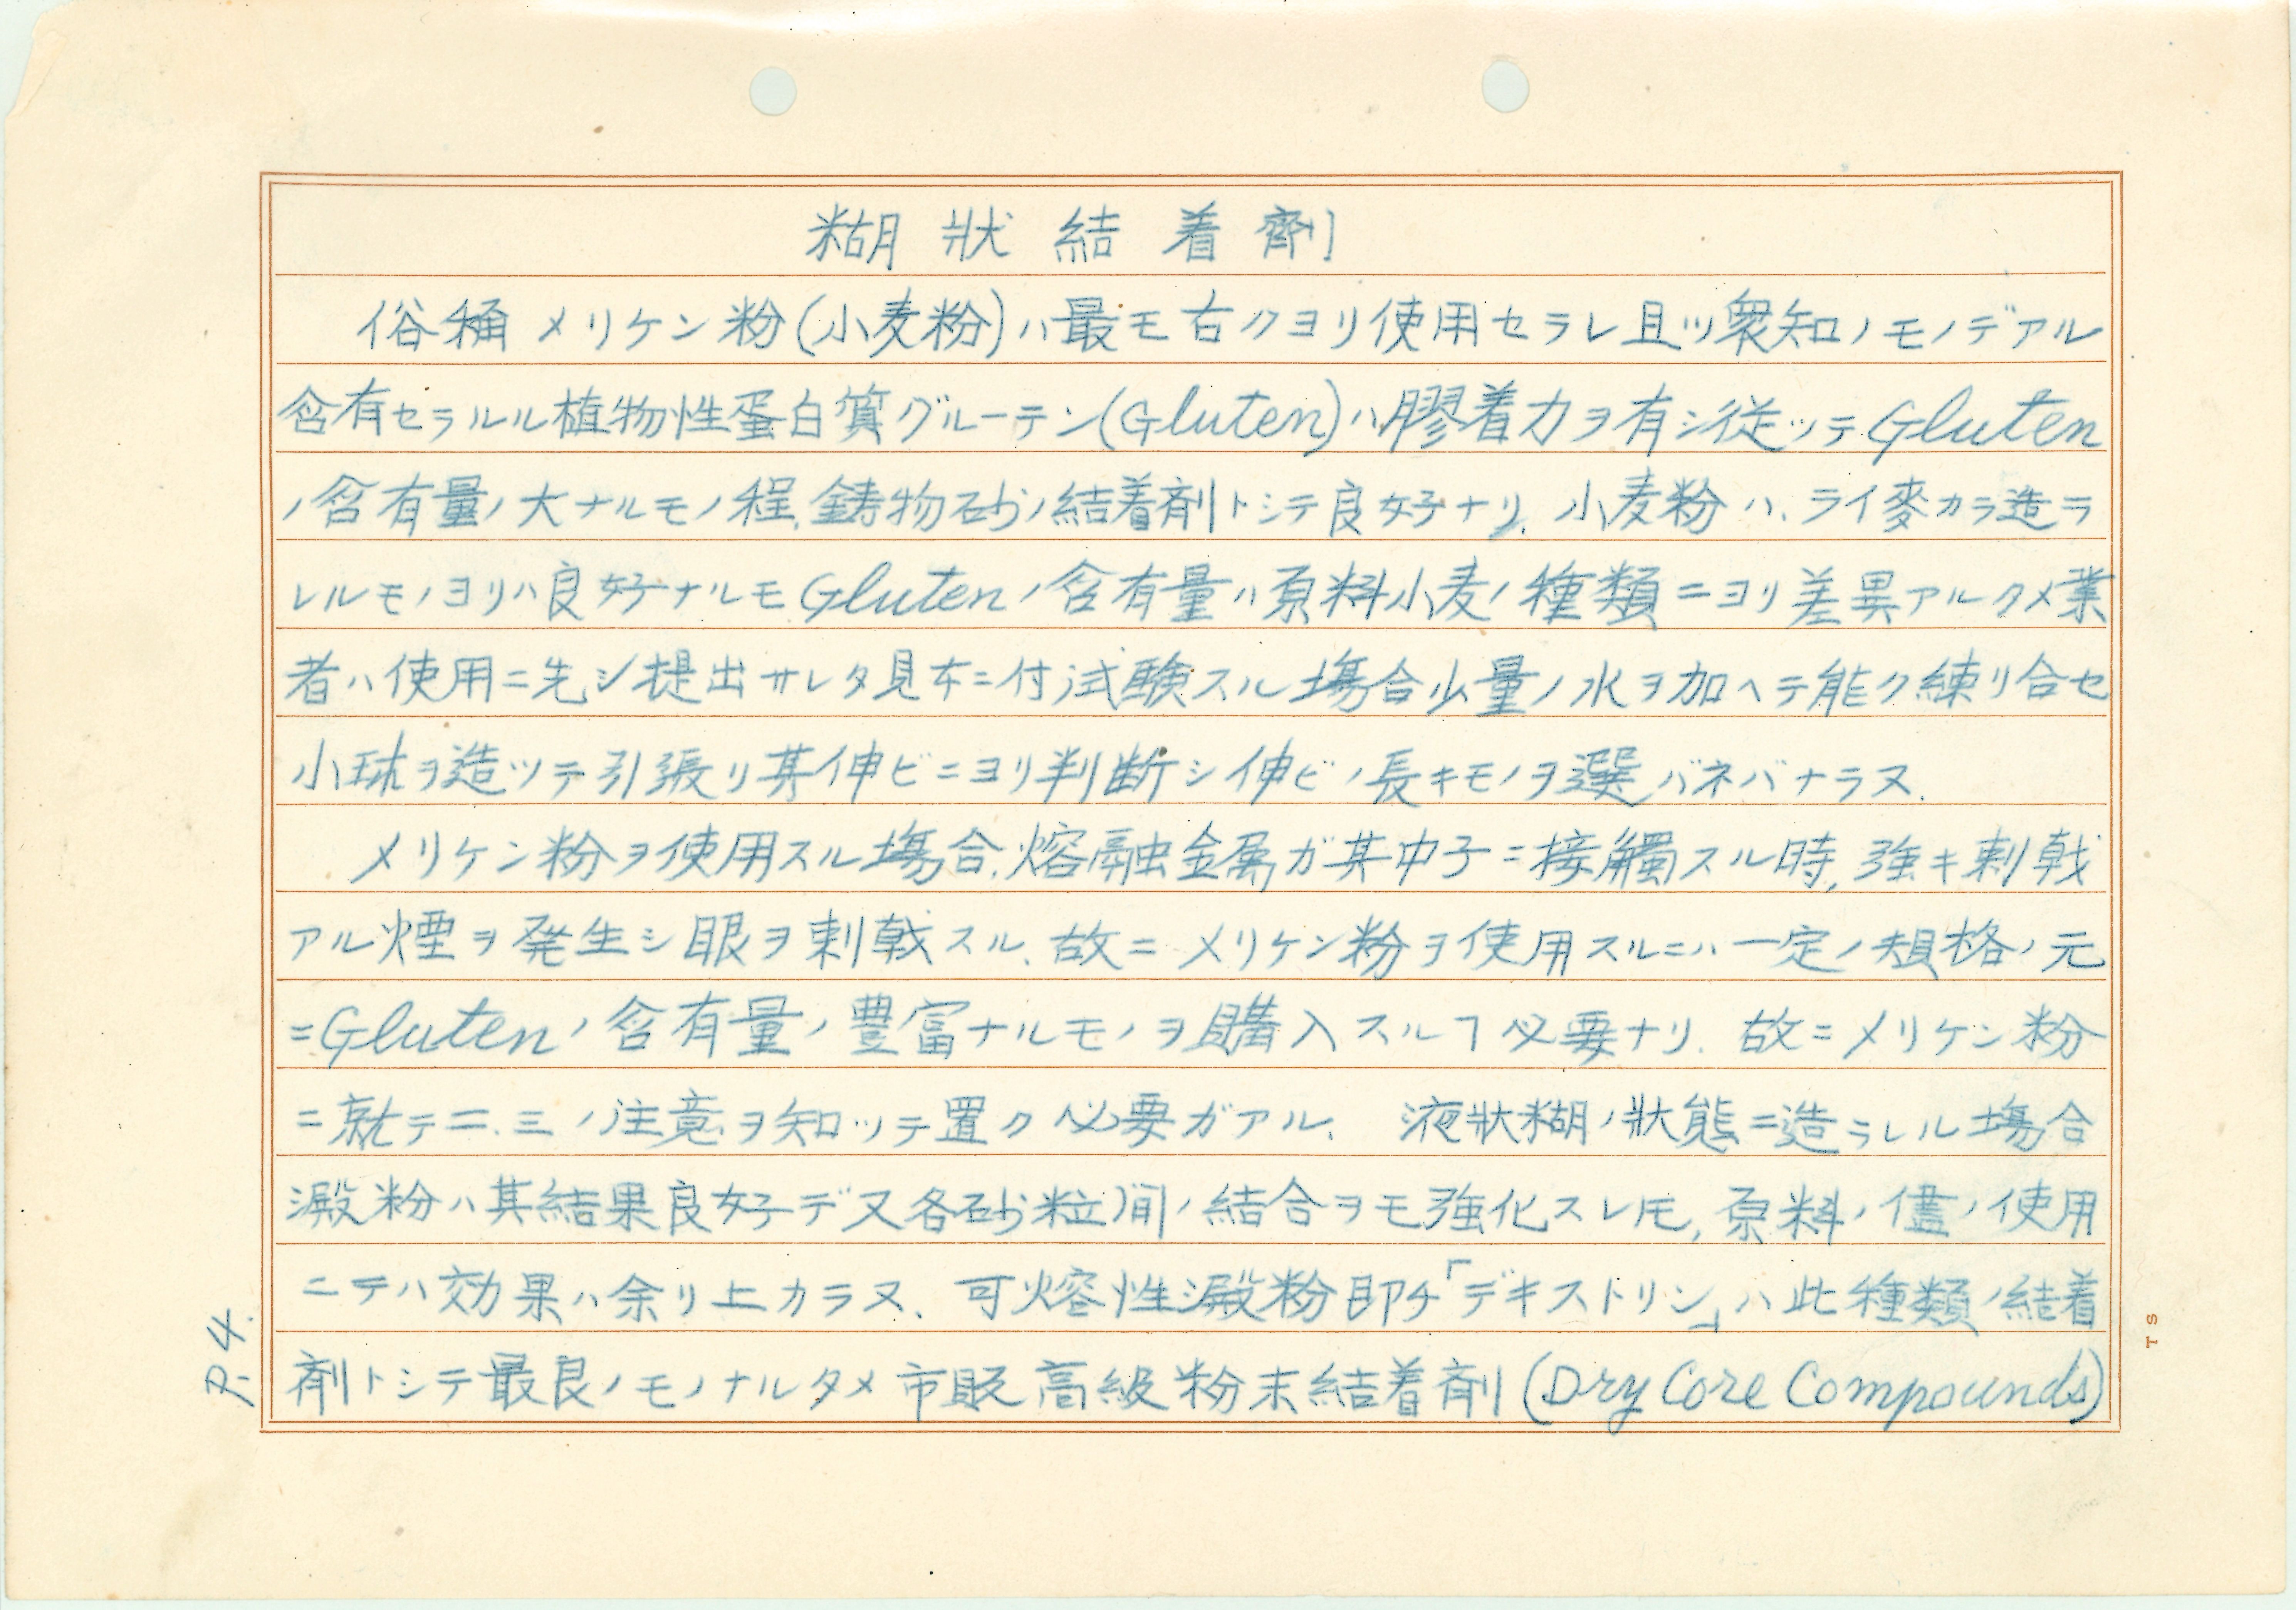 糊狀結着劑
俗稱メリケン粉(小麦粉)ハ最モ古クヨリ使用セラレ且ツ衆知ノモノデアル
含有セラルル植物性蛋白質グルーテン(Gluten)ハ膠着力ヲ有シ従ッテGluten
ノ含有量ノ大ナルモノ程、鋳物砂ノ結着剤トシテ良好ナリ、小麦粉ハ、ライ麥カラ造ラ
レルモノヨリハ良好ナルモGlutenノ含有量ハ原料小麦ノ種類ニヨリ差異アルタメ業
者ハ使用ニ先ジ提出サレタ見本ニ付試験スル塲合少量ノ水ヲ加ヘテ能ク練リ合セ
小球ヲ造ッテ引張リ其伸ビニヨリ判断シ伸ビノ長キモノヲ選バネバナラヌ.
メリケン粉ヲ使用スル塲合、熔融金属ガ其中子ニ接觸スル時、強キ刺戟
アル煙ヲ発生シ眼ヲ刺戟スル、故ニメリケン粉ヲ使用スルニハ一定ノ規格ノ元
ニGlutenノ含有量ノ豊富ナルモノヲ購入スルヿ必要ナリ. 故ニメリケン粉
ニ就テ二、三ノ注意ヲ知ッテ置ク必要ガアル、 液狀糊ノ狀態ニ造ラレル塲合
澱粉ハ其結果良好デ又各砂粒间ノ結合ヲモ強化スレ𪜈、原料ノ儘ノ使用
ニテハ効果ハ余リ上カラヌ、可熔性澱粉即チ「デキストリン」ハ此種類ノ結着
剤トシテ最良ノモノナルタメ市販高級粉末結着剤(Dry Core Compounds)
P.4.
TS